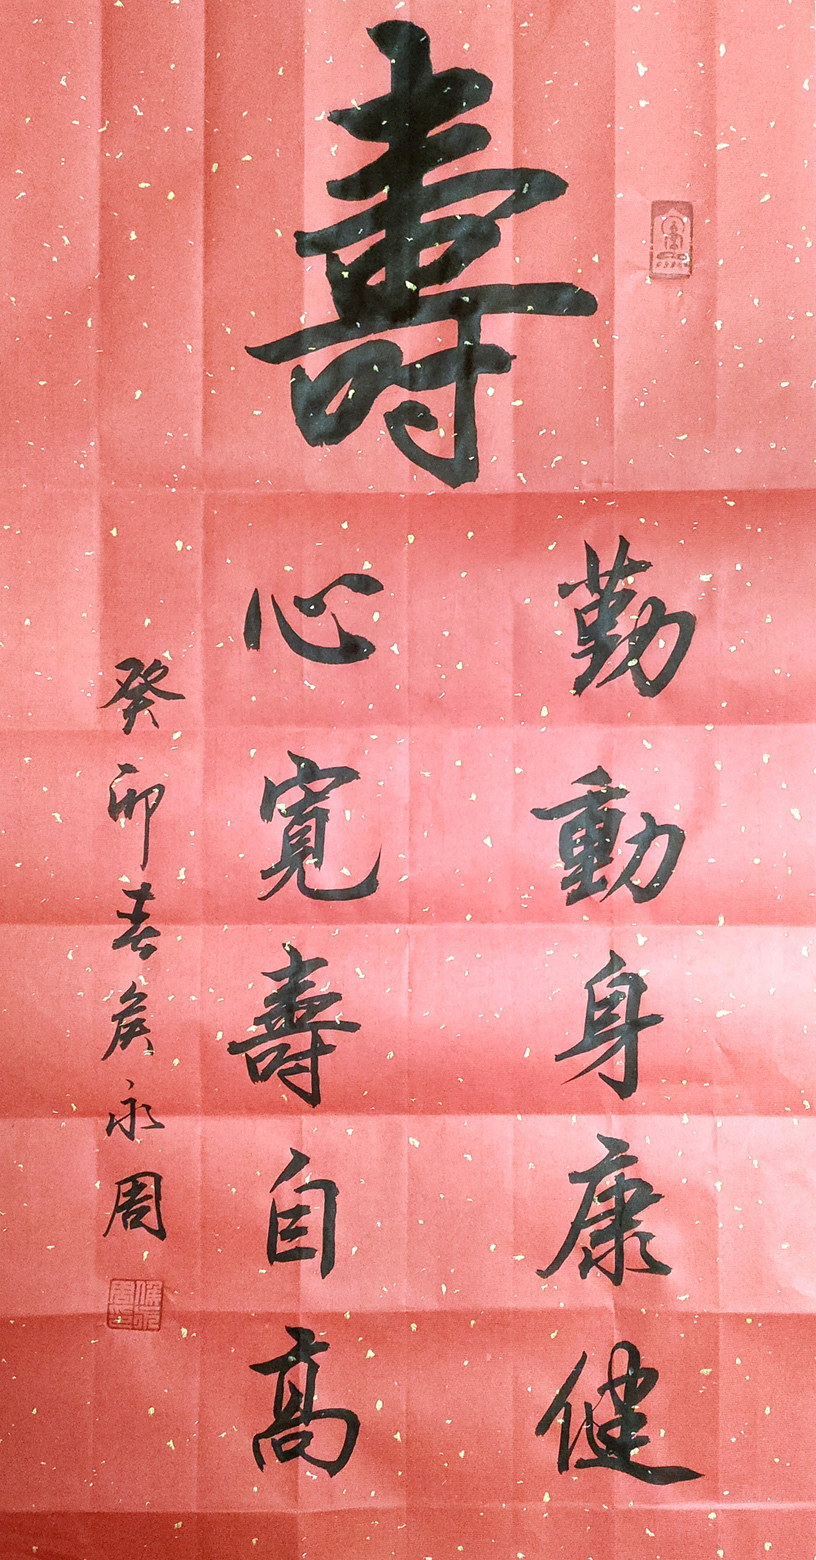 壽
勤動身康健
心寬壽自高
癸卯春侯永周